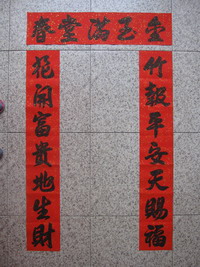 金玉滿堂春
竹報平安天賜福
花開富貴地生財